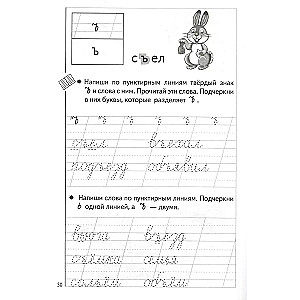 ъ
Ъ
съел
Напиши по пунктирным линиям твёрдый знак
ъ и слова с ним. Прочитай эти слова. Подчеркни
в них буквы, которые разделяет ъ.
съел въехал
подъезд объявил
Напиши слова по пунктирным линиям. Подчеркни
ь одной линией, а ъ — двумя.
вьюга въезд
съёмка семья
объём
30